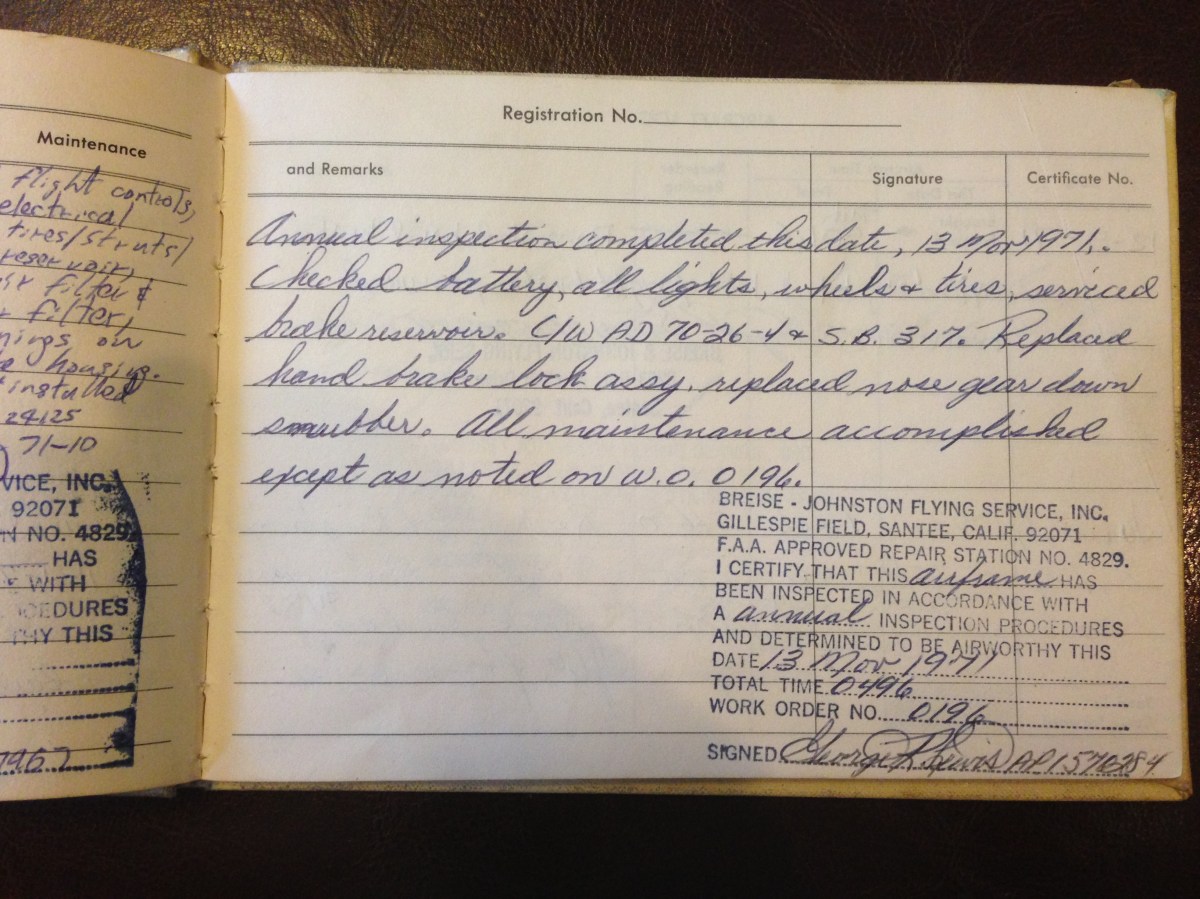 Maintenance
flight controls,
electrical
tires/struts/
reservoir,
filter &
filter,
on
housing.
installed
24125
71-10
VICE, INC.
92071
N NO. 4829
HAS
WITH
CEDURES
THY THIS
1967
Registration No.
and Remarks
Signature
Certificate No.
Annual inspection completed this date, 13 Nov 1971.
Checked battery, all lights, wheels & tires, serviced
brake reservoir. C/W AD 70-26-4 & S.B. 317. Replaced
hand brake lock assy. replaced nose gear down
snubber. All maintenance accomplished
except as noted on W.O. 0196.
BREISE - JOHNSTON FLYING SERVICE, INC.
GILLESPIE FIELD, SANTEE, CALIF. 92071
F.A.A. APPROVED REPAIR STATION NO. 4829.
I CERTIFY THAT THIS airframe HAS
BEEN INSPECTED IN ACCORDANCE WITH
A annual INSPECTION PROCEDURES
AND DETERMINED TO BE AIRWORTHY THIS
DATE 13 Nov 1971
TOTAL TIME 0496
WORK ORDER NO. 0196
SIGNED George R Lewis AP